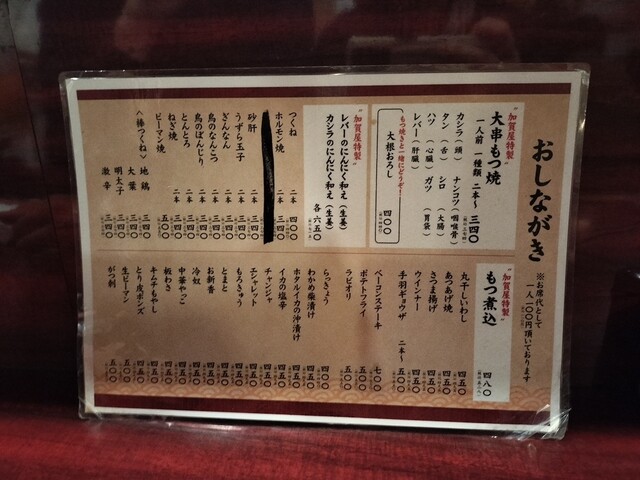 おしながき
※お席代として
一人一〇〇円頂いております
"加賀屋特製"
大串もつ焼
一人前 一種類 二本〜 三四〇
カシラ（頭） ナンコツ（咽喉骨）
タン（舌） シロ（大腸）
ハツ（心臓） ガツ（胃袋）
レバー（肝臓）
もつ焼きと一緒にどうぞ！
大根おろし 四〇〇
"加賀屋特製"
レバーのにんにく和え（生姜）
カシラのにんにく和え（生姜）
各六五〇
つくね 二本 四〇〇
ホルモン焼 二本 三四〇
砂肝 二本 三四〇
うずら玉子 二本 三四〇
ぎんなん 二本 三四〇
鳥のなんこつ 二本 三四〇
鳥のぼんじり 二本 三四〇
とんとろ 二本
ねぎ焼 二本 三四〇
ピーマン焼 二本
〈棒つくね〉 地鶏 三四〇
大葉 三四〇
明太子 三四〇
激辛 三四〇
"加賀屋特製"
もつ煮込 四八〇
丸干しいわし 四五〇
あつあげ焼 四五〇
さつま揚げ 四五〇
ウインナー 四五〇
手羽ギョウザ 二本〜 五〇〇
ベーコンステーキ 七〇〇
ポテトフライ 五〇〇
ラビオリ 五〇〇
らっきょう 四〇〇
わかめ柴漬け 四〇〇
ホタルイカの沖漬け 四五〇
イカの塩辛 四五〇
チャンジャ 四五〇
エシャレット 四五〇
もろきゅう 四五〇
とまと 四五〇
お新香 四五〇
冷奴 四五〇
中華やっこ 四五〇
板わさ 四五〇
キムチもやし 四五〇
とり皮ポンズ 四五〇
生ピーマン 五〇〇
がつ刺 五〇〇